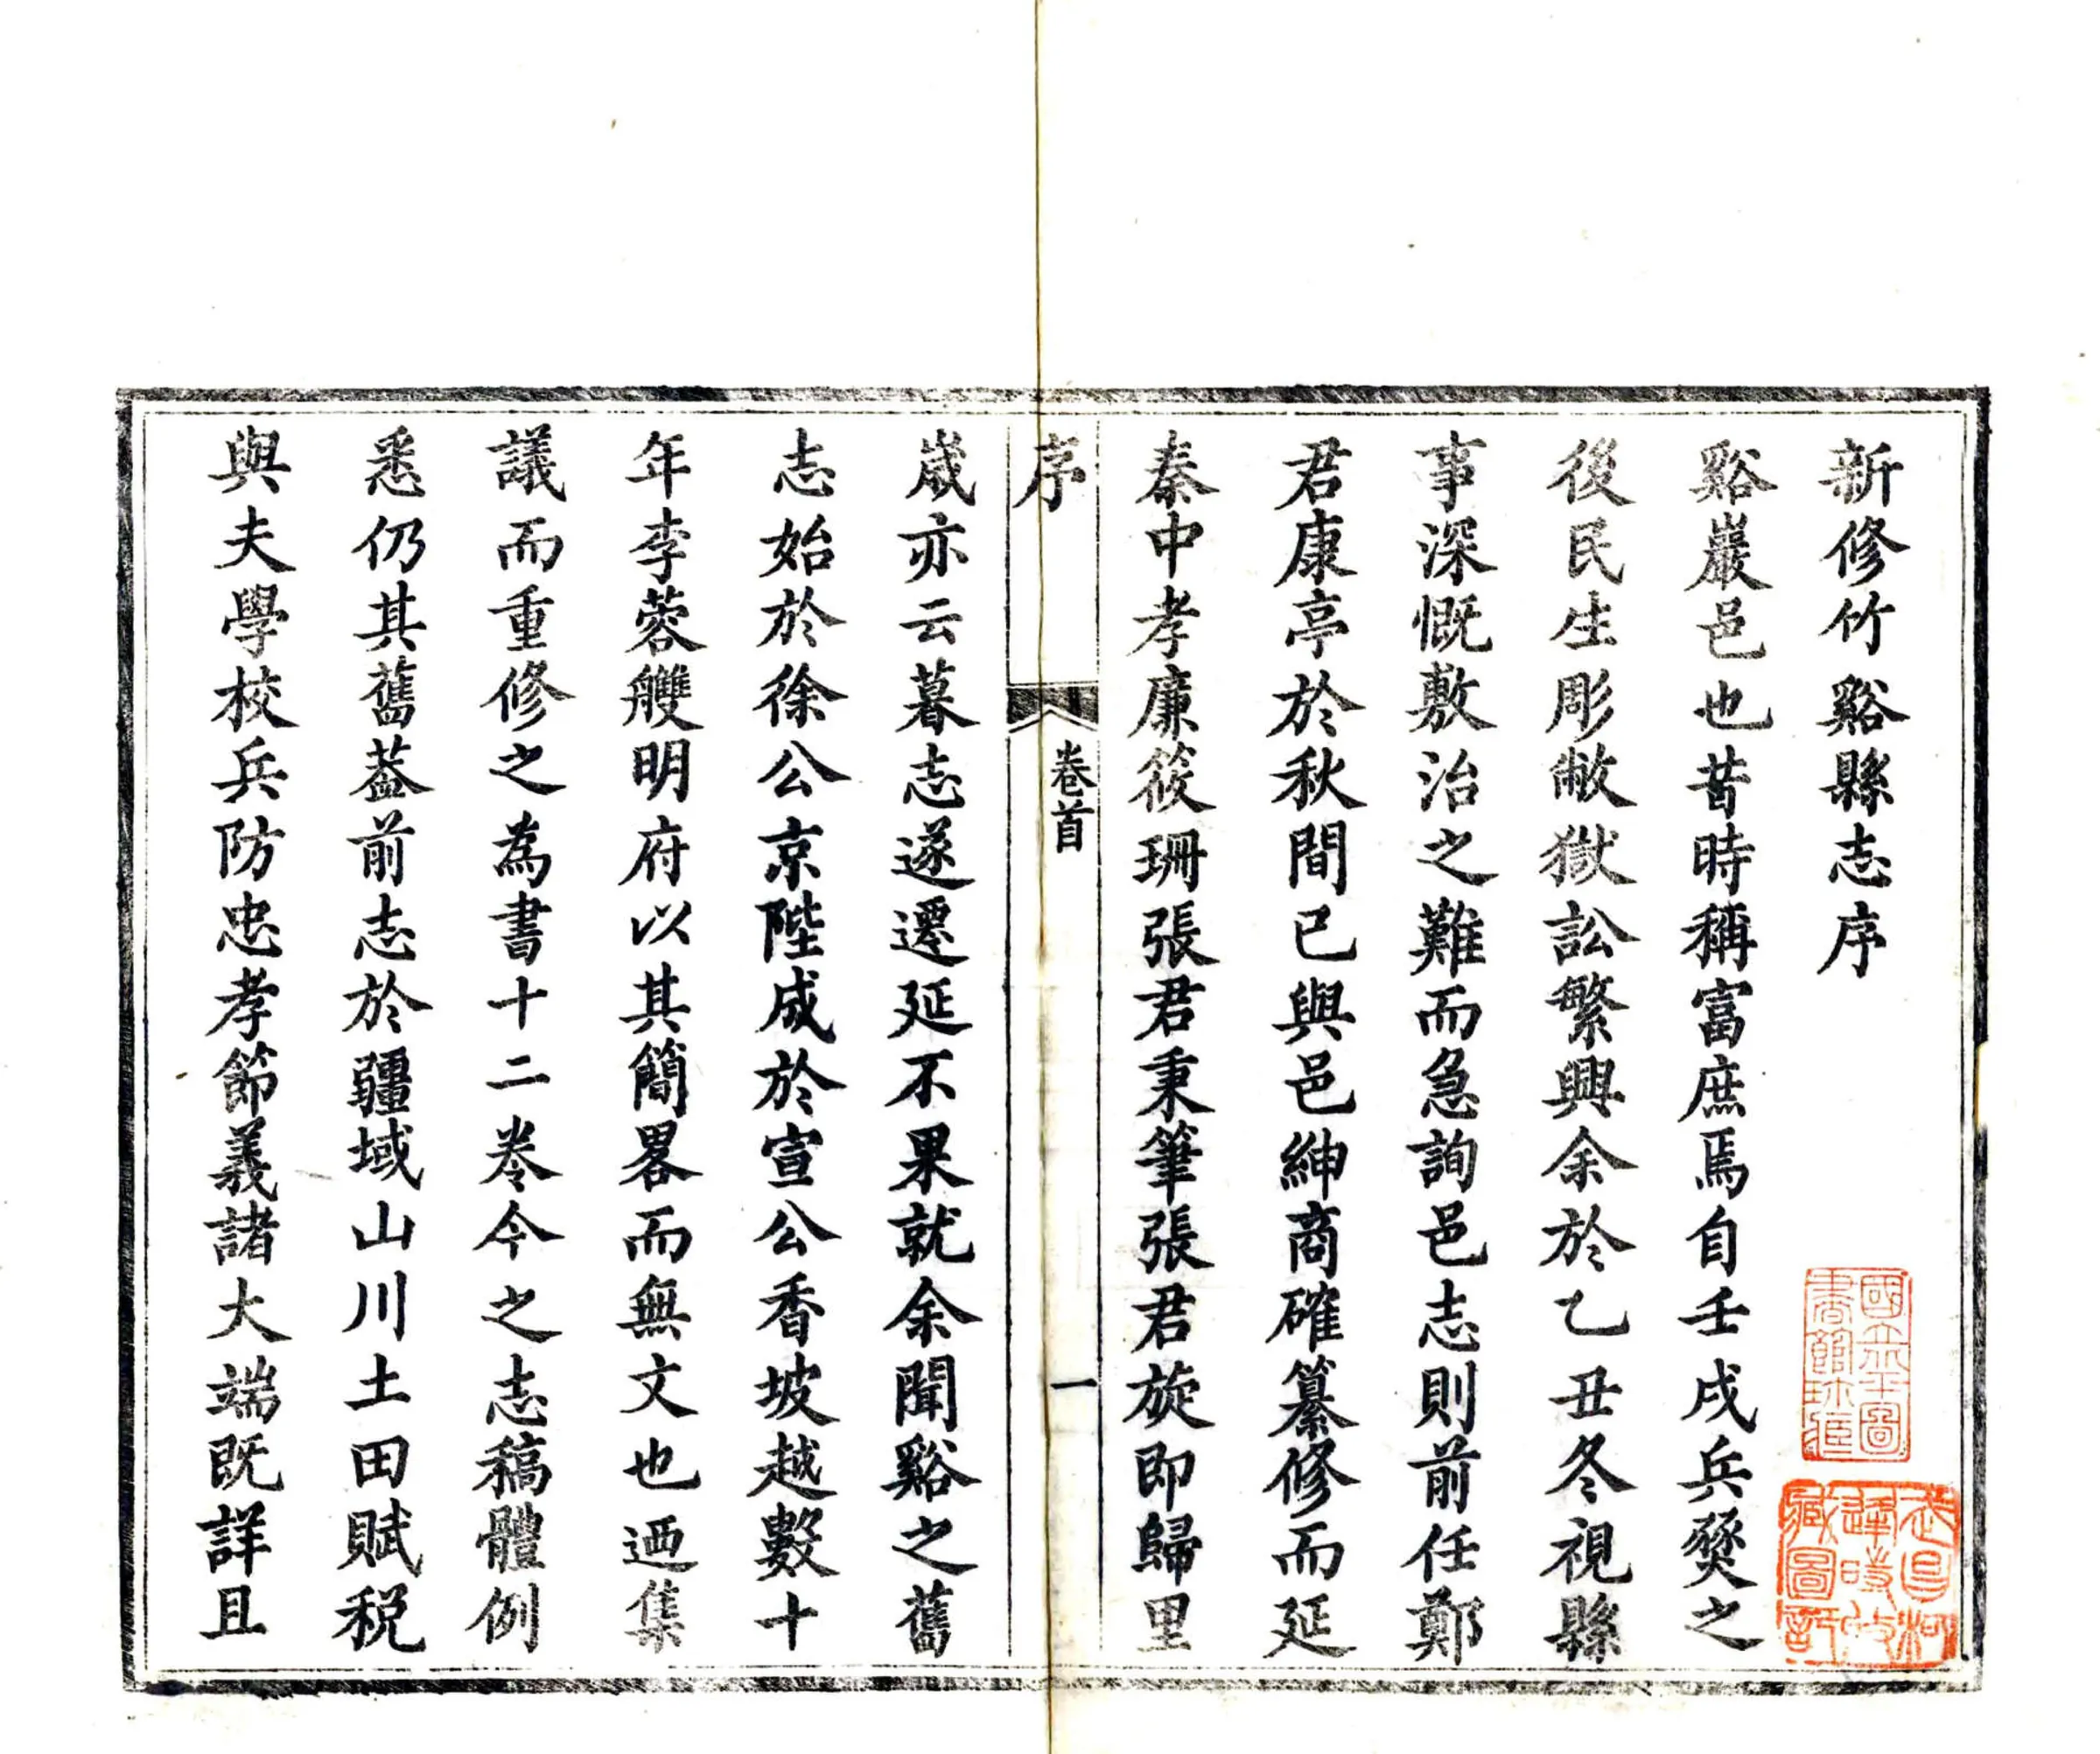 新修竹谿縣志序
谿巖邑也昔時稱富庶焉自壬戌兵燹之
後民生彫敝獄訟繁興余於乙丑冬視縣
事深慨敷治之難而急詢邑志則前任鄭
君康亭於秋間已與邑紳商確纂修而延
秦中孝廉筱珊張君秉筆張君旋即歸里
序
卷首
一
歲亦云暮志遂遷延不果就余聞谿之舊
志始於徐公京陛成於宣公香坡越數十
年李蓉艭明府以其簡畧而無文也迺集
議而重修之為書十二卷今之志稿體例
悉仍其舊葢前志於疆域山川土田賦稅
與夫學校兵防忠孝節義諸大端既詳且
國立北平圖
書館珍藏
武昌柯
逢時收
藏圖記